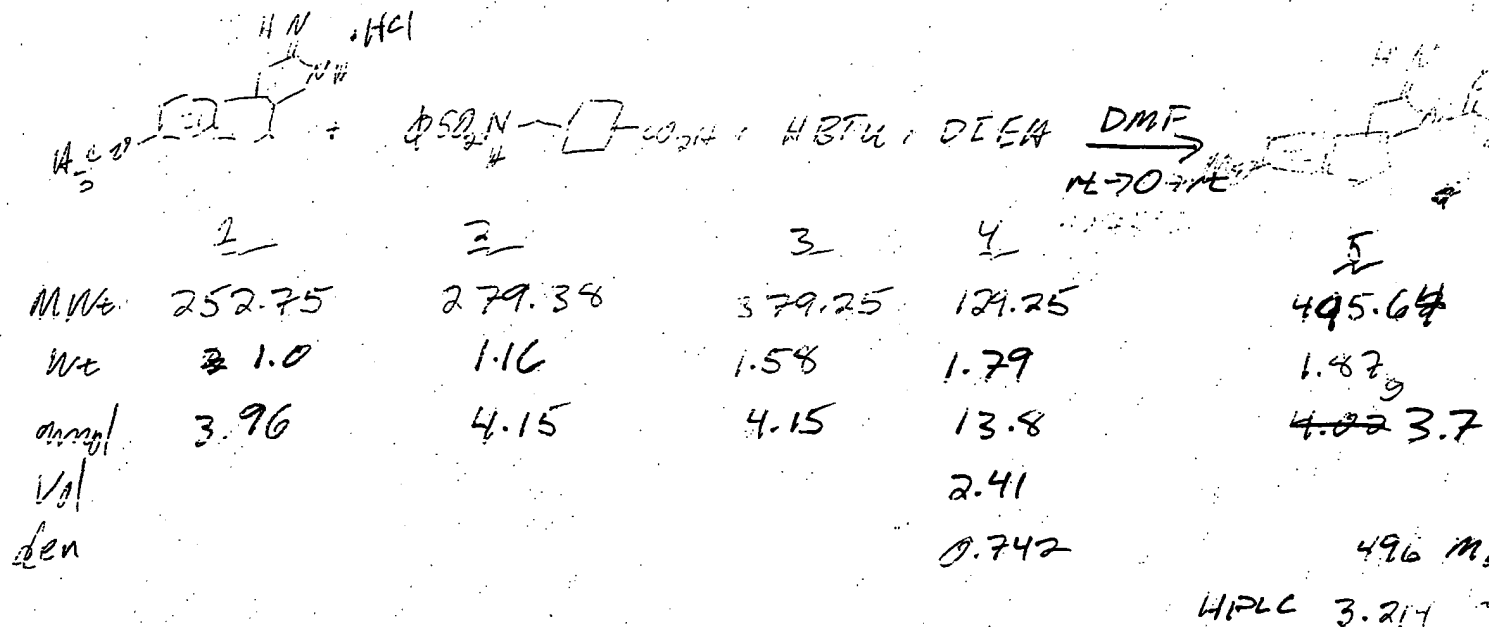 HN .HCl HN
NH
H3CO + φSO2N CO2H , HBTU , DIEA DMF MeO
H
rt→0→rt
1 2 3 4 5
MWt 252.75 279.38 379.25 129.25 495.64
Wt 1.0 1.16 1.58 1.79 1.87g
mmol 3.96 4.15 4.15 13.8 4.02 3.7
Vol 2.41
den 0.742 496
HPLC 3.214